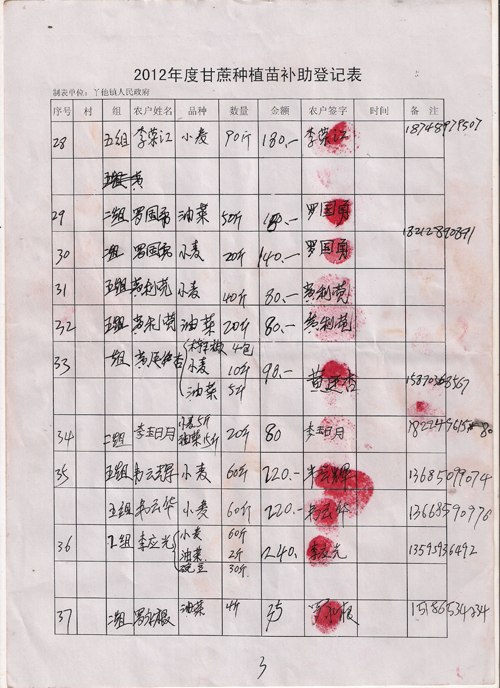 2012年度甘蔗种植苗补助登记表
制表单位：丫他镇人民政府
序号 村 组 农户姓名 品种 数量 金额 农户签字 时间 备 注
28 五组 李荣江 小麦 90斤 180.- 李荣江
29 二组 罗国勇 油菜 50斤 罗国勇
30 罗国勇 小麦 20斤 140.- 罗国勇
31 五组 黄利莞 小麦 40斤 80.- 黄利莞
32 五组 黄利莞 油菜 20斤 80.- 黄利莞
33 一组 4包
小麦 10斤 98.-
油菜 5斤 15870368567
34 二组 小麦5斤 20斤 80
油菜15斤
35 五组 韦云辉 小麦 60斤 220.- 韦云辉 13685099074
五组 韦云华 小麦 60斤 220.- 韦云华 13668590976
36 2组 李应光 小麦 60斤
油菜 2斤 240. 13595936492
豌豆 30斤
37 二组 油菜 4斤 15186534234
3